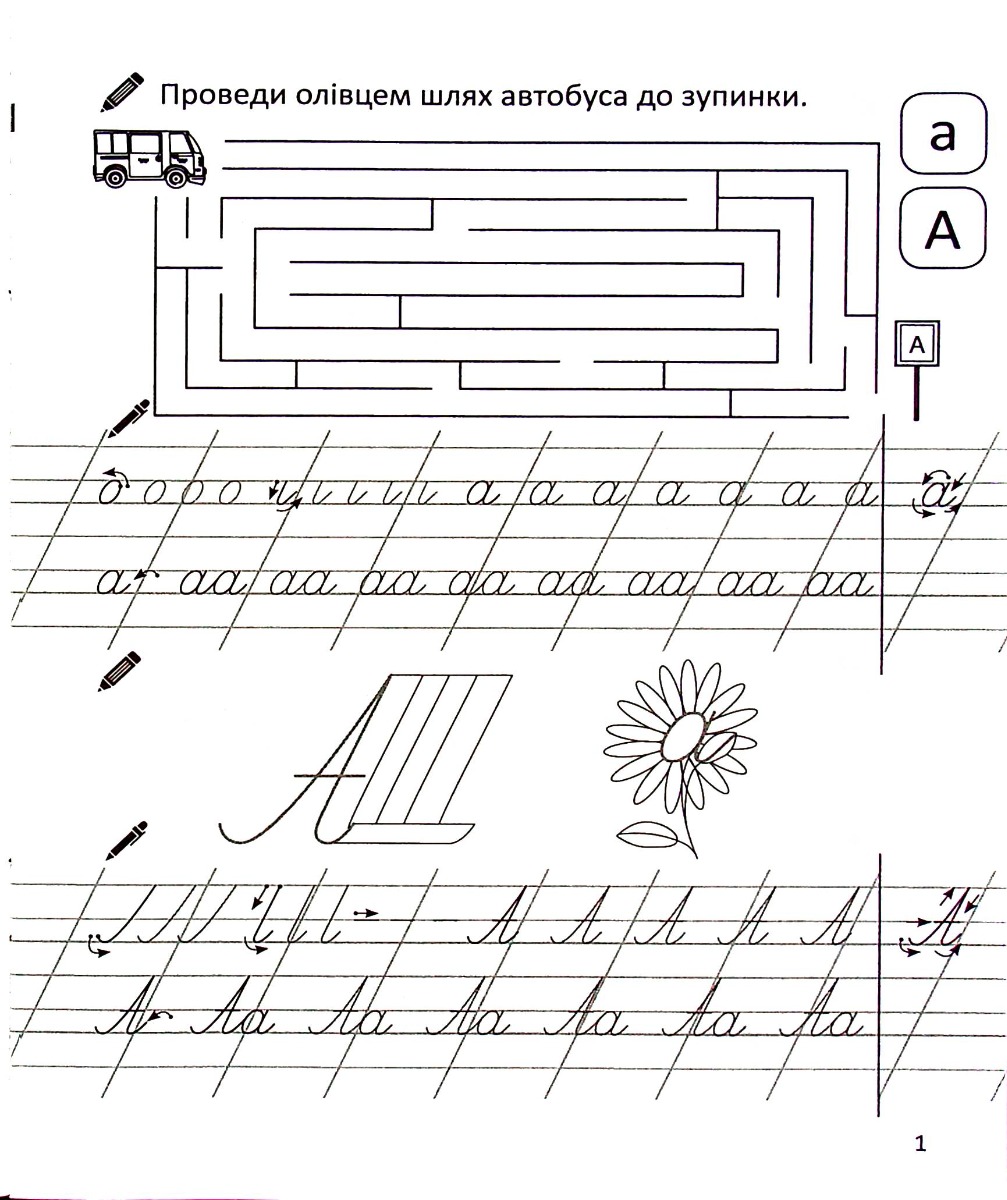 Проведи олівцем шлях автобуса до зупинки.
а
А
А
о о о о и и и и и а а а а а а а а
а аа аа аа аа аа аа аа аа
А
А А А А А А
А Аа Аа Аа Аа Аа Аа
1